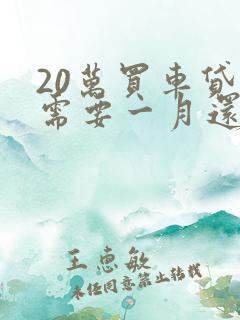 20萬買車貸
需要一月還
王惠敏
未任同意禁止转载